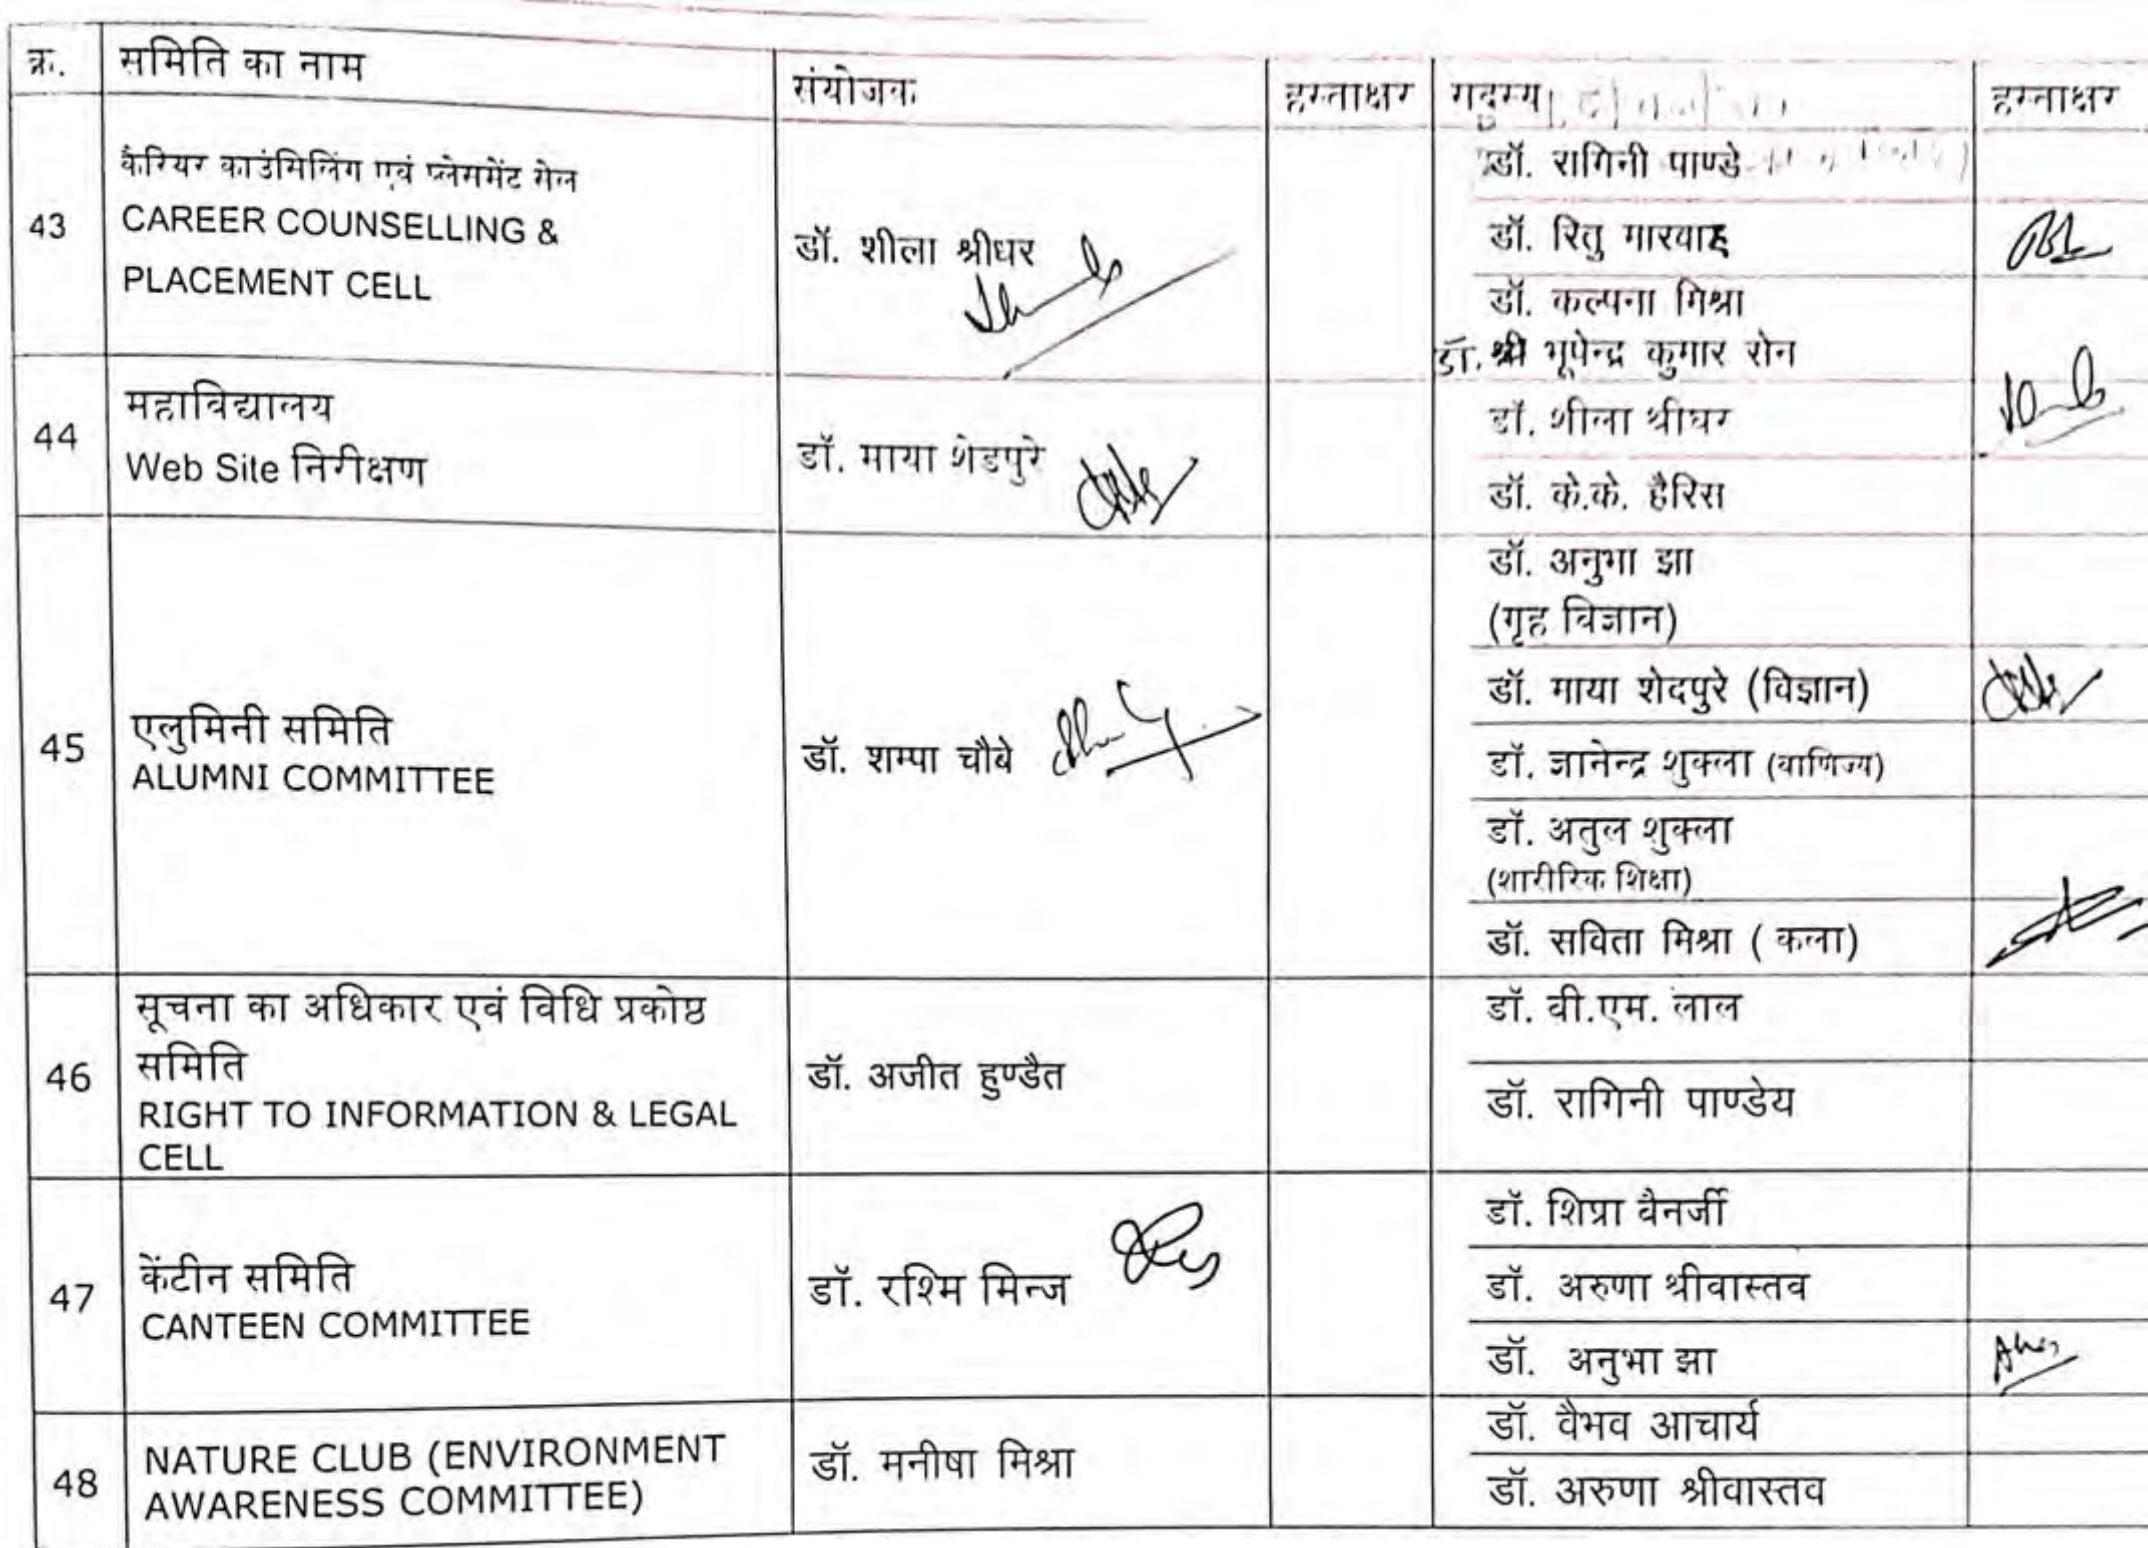 क्र.
समिति का नाम
संयोजक
हस्ताक्षर
सदस्य
हस्ताक्षर
43
कैरियर काउंसिलिंग एवं प्लेसमेंट सेल
CAREER COUNSELLING &
PLACEMENT CELL
डॉ. शीला श्रीधर
डॉ. रागिनी पाण्डे
डॉ. रितु मारवाह
डॉ. कल्पना मिश्रा
डॉ. श्री भूपेन्द्र कुमार सेन
44
महाविद्यालय
Web Site निरीक्षण
डॉ. माया शेडपुरे
डॉ. शीला श्रीधर
डॉ. के.के. हैरिस
45
एलुमिनी समिति
ALUMNI COMMITTEE
डॉ. शम्पा चौबे
डॉ. अनुभा झा
(गृह विज्ञान)
डॉ. माया शेदपुरे (विज्ञान)
डॉ. ज्ञानेन्द्र शुक्ला (वाणिज्य)
डॉ. अतुल शुक्ला
(शारीरिक शिक्षा)
डॉ. सविता मिश्रा ( कला)
46
सूचना का अधिकार एवं विधि प्रकोष्ठ
समिति
RIGHT TO INFORMATION & LEGAL
CELL
डॉ. अजीत हुण्डैत
डॉ. वी.एम. लाल
डॉ. रागिनी पाण्डेय
47
केंटीन समिति
CANTEEN COMMITTEE
डॉ. रश्मि मिन्ज
डॉ. शिप्रा वैनर्जी
डॉ. अरुणा श्रीवास्तव
डॉ. अनुभा झा
48
NATURE CLUB (ENVIRONMENT
AWARENESS COMMITTEE)
डॉ. मनीषा मिश्रा
डॉ. वैभव आचार्य
डॉ. अरुणा श्रीवास्तव